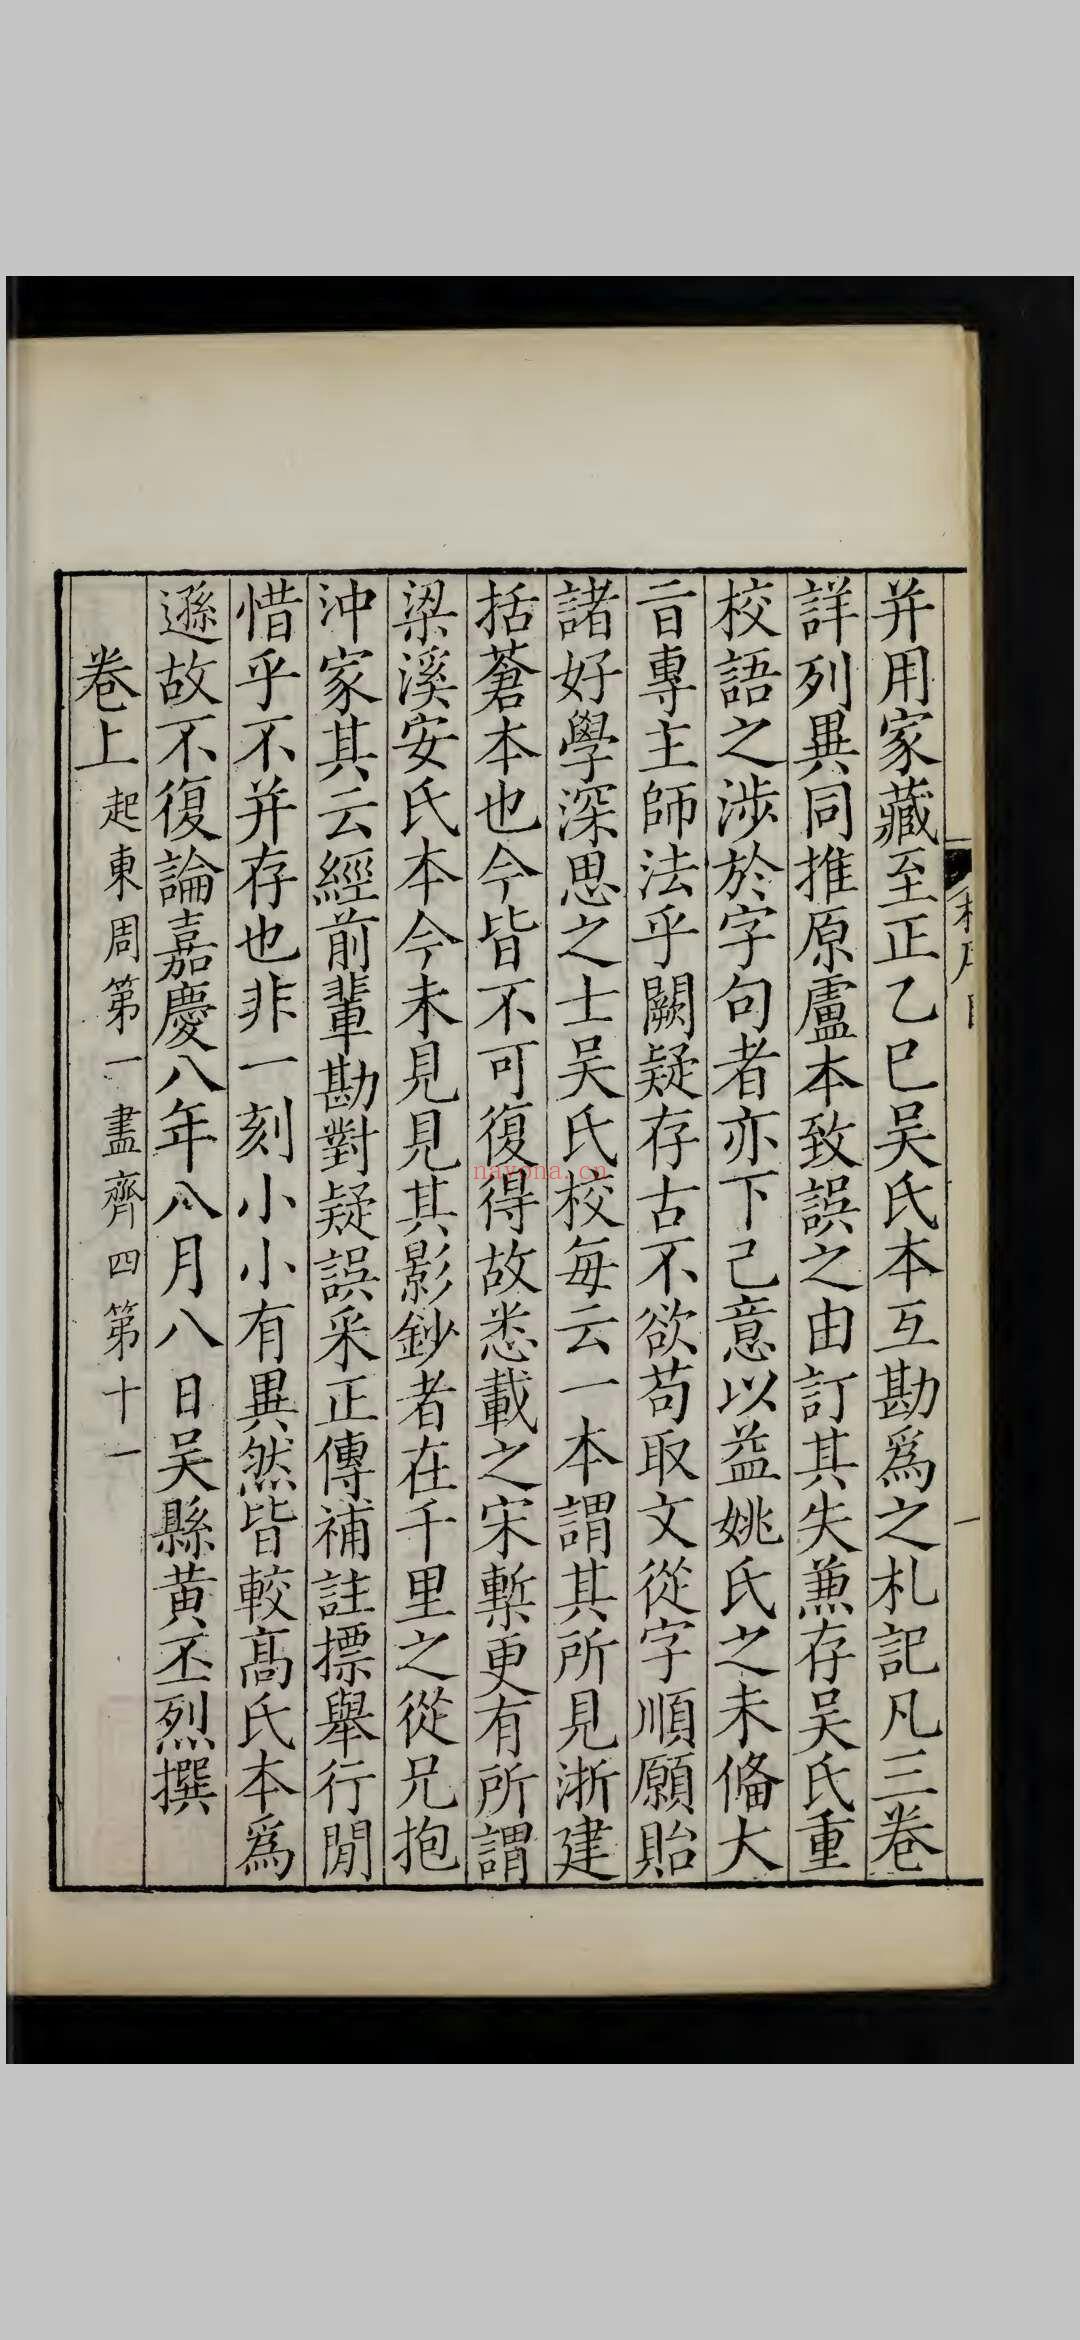 并用家藏至正乙巳吴氏本互勘爲之札記凡三卷
詳列異同推原盧本致誤之由訂其失兼存吴氏重
校語之涉於字句者亦下己意以益姚氏之未偹大
㫖專主師法乎闕疑存古不欲苟取文從字順願貽
諸好學深思之士吴氏校每云一本謂其所見浙建
括蒼本也今皆不可復得故悉載之宋槧更有所謂
梁溪安氏本今未見見其影鈔者在千里之從兄抱
沖家其云經前輩勘對疑誤采正傳補註摽舉行閒
惜乎不并存也非一刻小小有異然皆較高氏本爲
遜故不復論嘉慶八年八月八日吴縣黄丕烈撰
卷上起東周第一盡齊四第十一
一
nayona.cn